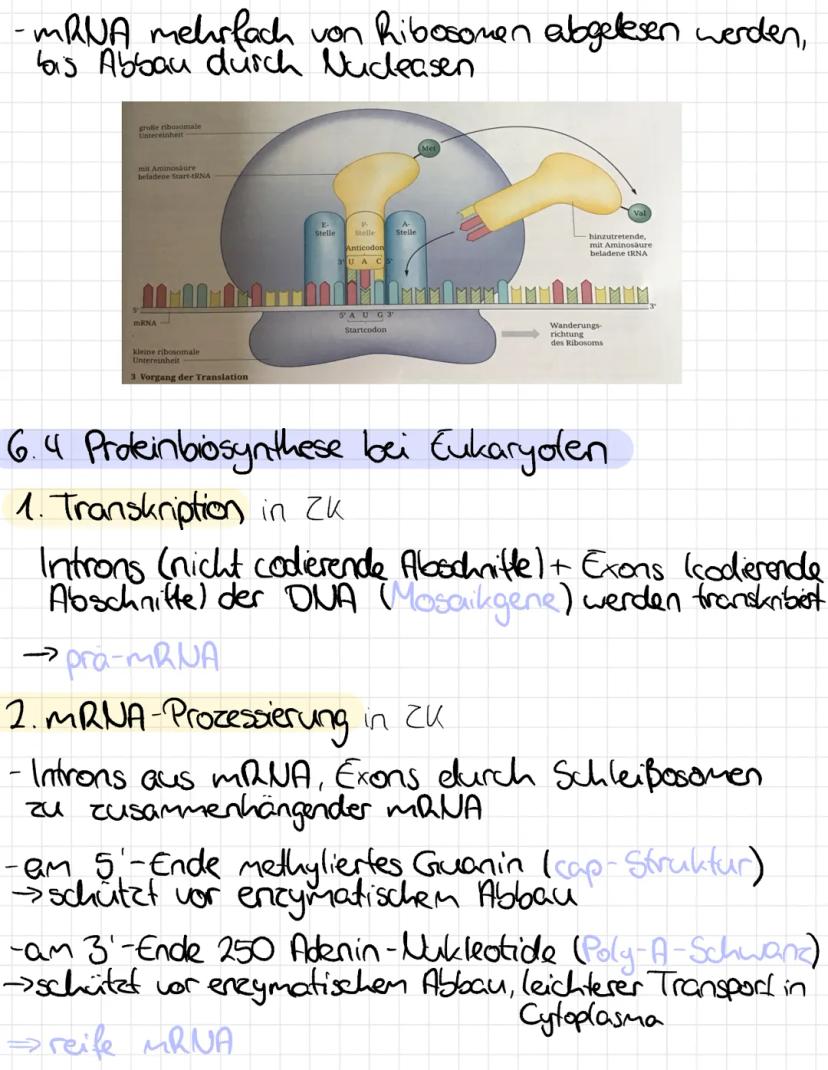 - mRNA mehrfach von Ribosomen abgelesen werden,
bis Abbau durch Nucleasen
große ribosomale
Untereinheit
Met
mit Aminosäure
beladene Start-tRNA
Val
E-
Stelle
P-
Stelle
A-
Stelle
hinzutretende,
mit Aminosäure
beladene tRNA
Anticodon
3' U A C 5'
5'
3'
mRNA
5' A U G 3'
Startcodon
Wanderungs-
richtung
des Ribosoms
kleine ribosomale
Untereinheit
3 Vorgang der Translation
6.4 Proteinbiosynthese bei Eukaryoten
1. Transkription in ZK
Introns (nicht codierende Abschnitte) + Exons (codierende
Abschnitte) der DNA (Mosaikgene) werden transkribiert
→ prä-mRNA
2. mRNA-Prozessierung in ZK
- Introns aus mRNA, Exons durch Schleißosomen
zu zusammenhängender mRNA
- am 5'-Ende methyliertes Guanin (cap-Struktur)
→ schützt vor enzymatischem Abbau
- am 3'-Ende 250 Adenin-Nukleotide (Poly-A-Schwanz)
→ schützt vor enzymatischem Abbau, leichterer Transport in
Cytoplasma
⇒ reife mRNA